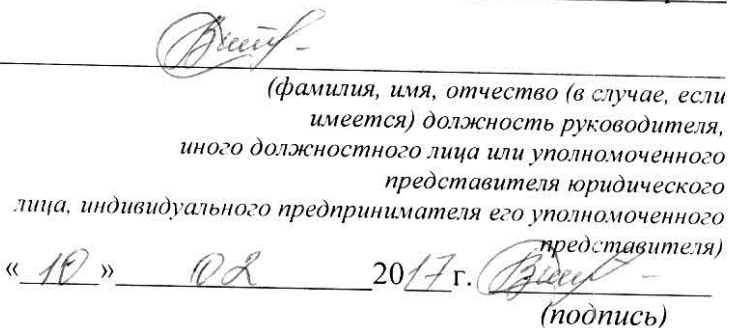 (фамилия, имя, отчество (в случае, если
имеется) должность руководителя,
иного должностного лица или уполномоченного
представителя юридического
лица, индивидуального предпринимателя его уполномоченного
представителя)
« 10 » 02 2017 г.
(подпись)